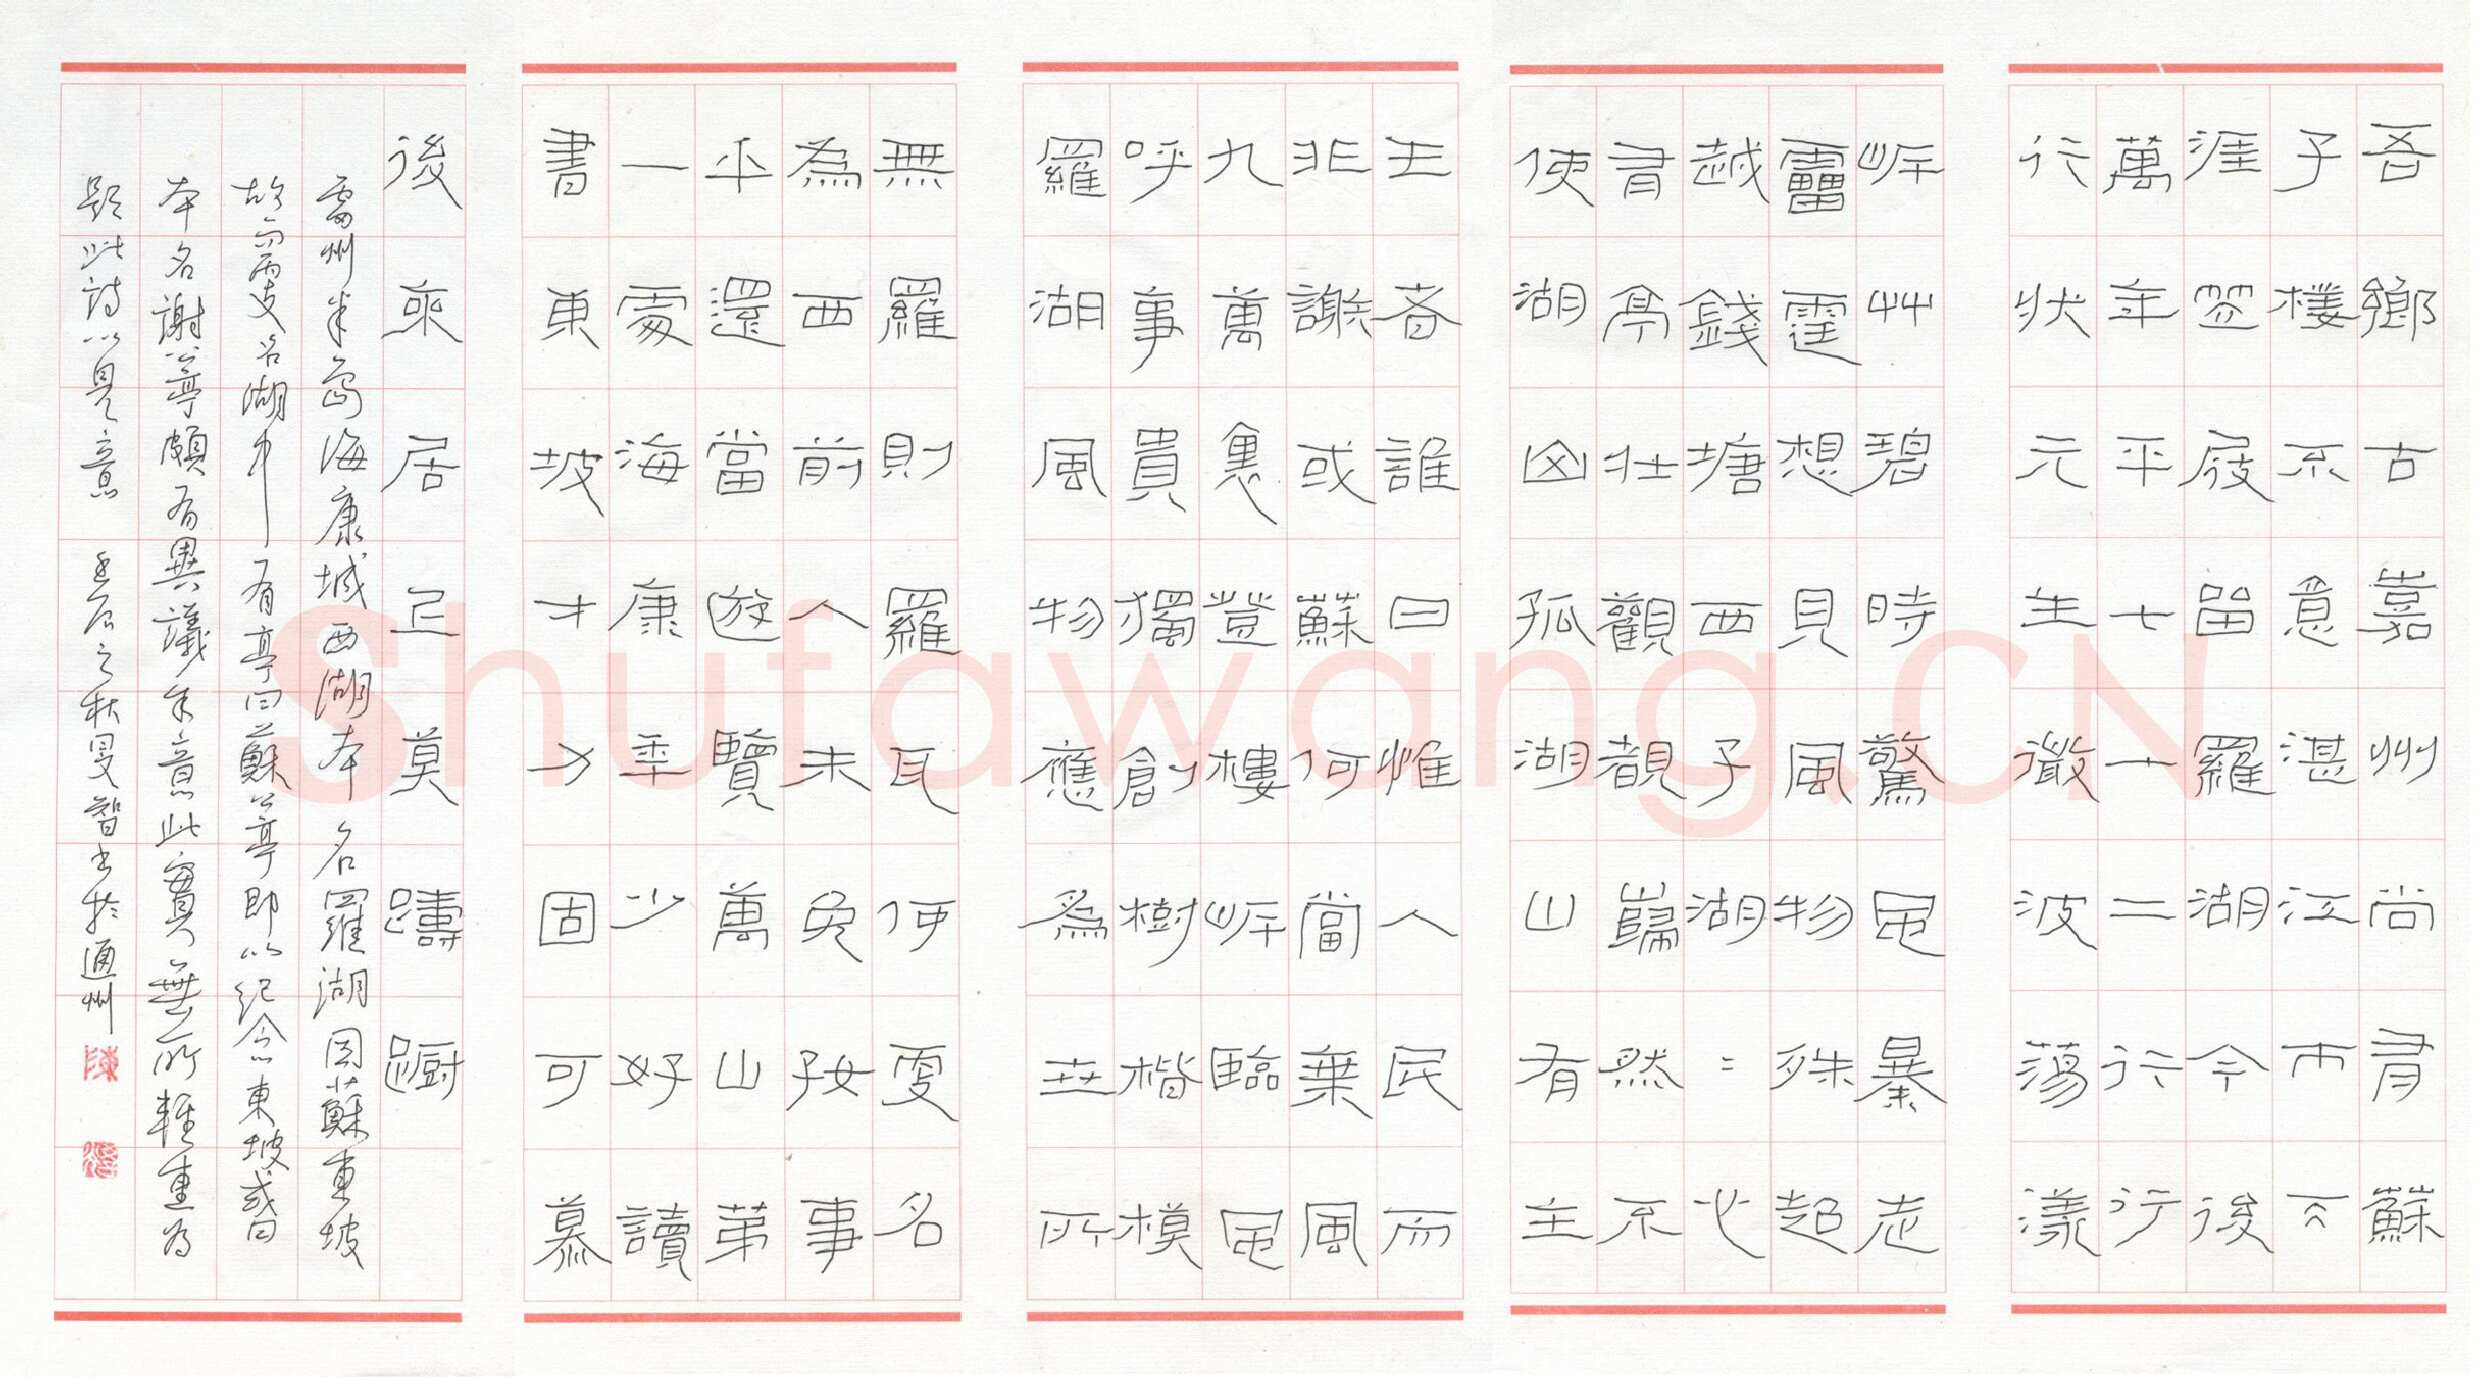 吾鄉古嘉州尚有蘇
子樓不意湛江市天
涯笠屐留羅湖今後
萬年平七十二行行
行狀元生微波蕩漾
岸艸碧時驚風暴走
雷霆想見風物殊起
越錢塘西湖〻心
有亭壯觀覩巋然不
使湖山孤湖山有主
主者誰曰惟人民而
非謝或蘇何當棄風
九萬裏登樓岸臨風
呼事貴獨創樹楷模
羅湖風物應為世所
無羅則羅瓦何更名
為西前人未免好事
平還當遊覽萬山第
一處海康年少好讀
書東坡才力固可慕
後來居上莫躊躇
雷州半島海康城西湖本名羅湖因蘇東坡
故而更名湖中有亭曰蘇公亭即以紀念東坡或曰
本名謝公亭頗有異議余意此實無所輕重為
題此詩以見意 壬辰之秋旻智書於通州
陳
Shufawang.CN